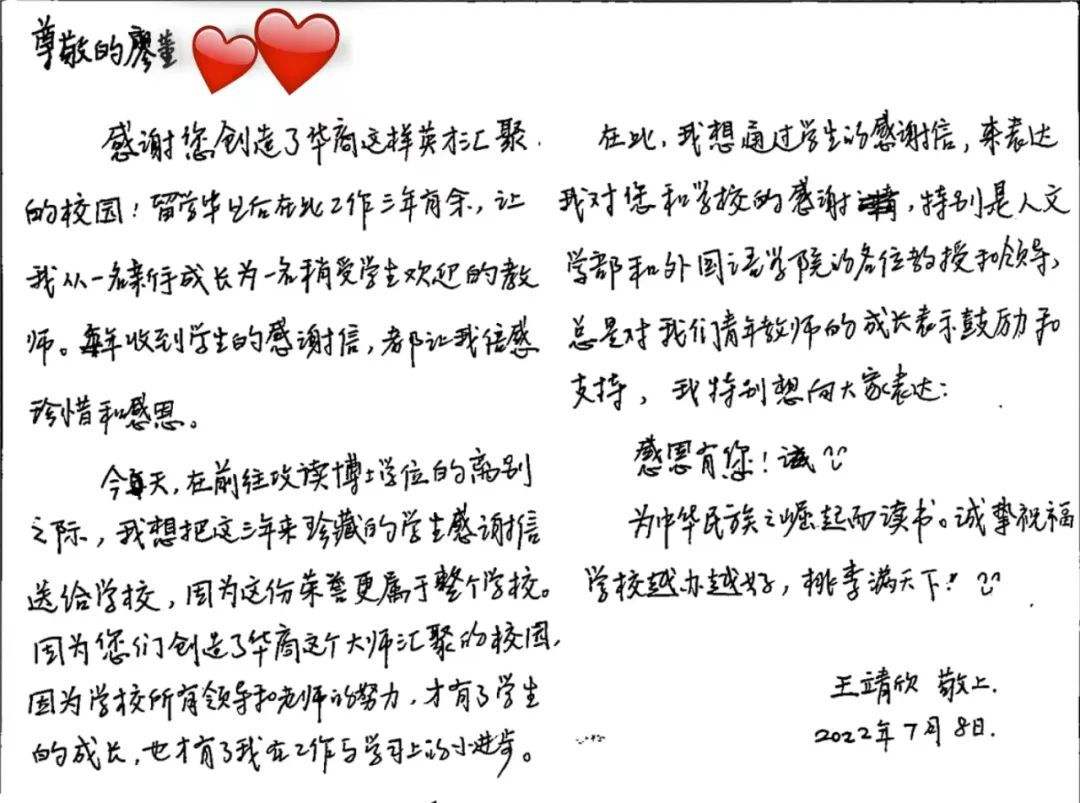 尊敬的廖董
感谢您创造了华商这样英才汇聚
的校园！留学毕业后在此工作三年有余，让
我从一名新手成长为一名稍受学生欢迎的教
师。每年收到学生的感谢信，都让我倍感
珍惜和感恩。
今天，在前往攻读博士学位的离别
之际，我想把这三年来珍藏的学生感谢信
送给学校，因为这份荣誉更属于整个学校。
因为您们创造了华商这个大师汇聚的校园，
因为学校所有领导和老师的努力，才有了学生
的成长，也才有了我在工作与学习上的小进步。
在此，我想通过学生的感谢信，来表达
我对您和学校的感谢，特别是人文
学部和外国语学院的各位教授和领导，
总是对我们青年教师的成长表示鼓励和
支持，我特别想向大家表达：
感恩有您！
为中华民族之崛起而读书。诚挚祝福
学校越办越好，桃李满天下！
王靖欣 敬上.
2022年7月8日.